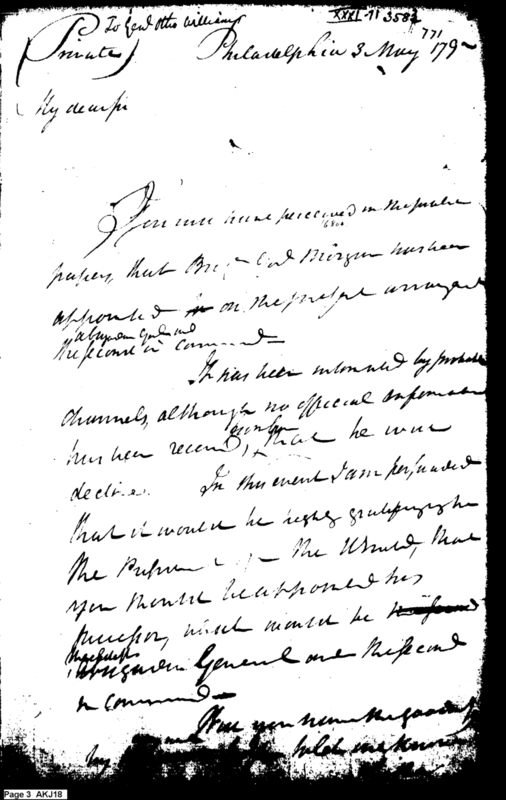 To Genl Otho Williams
XXXI-11 3582
771
(Private)
Philadelphia 3 May 179
My dear sir
You will have perceived in the public
papers, that Brigr Genl Morgan has been
appointed on the present arrangement
a brigadier General and
the second in command—
It has been intimated by private
channels, although no official information
has been received, that he will
decline. In this event I am persuaded
that it would be highly gratifying to
the President of the United, that
you should be appointed his
successor, which would be
brigadier General and the second
in command—
Will you have the goodness
my let me know
Page 3 AKJ18